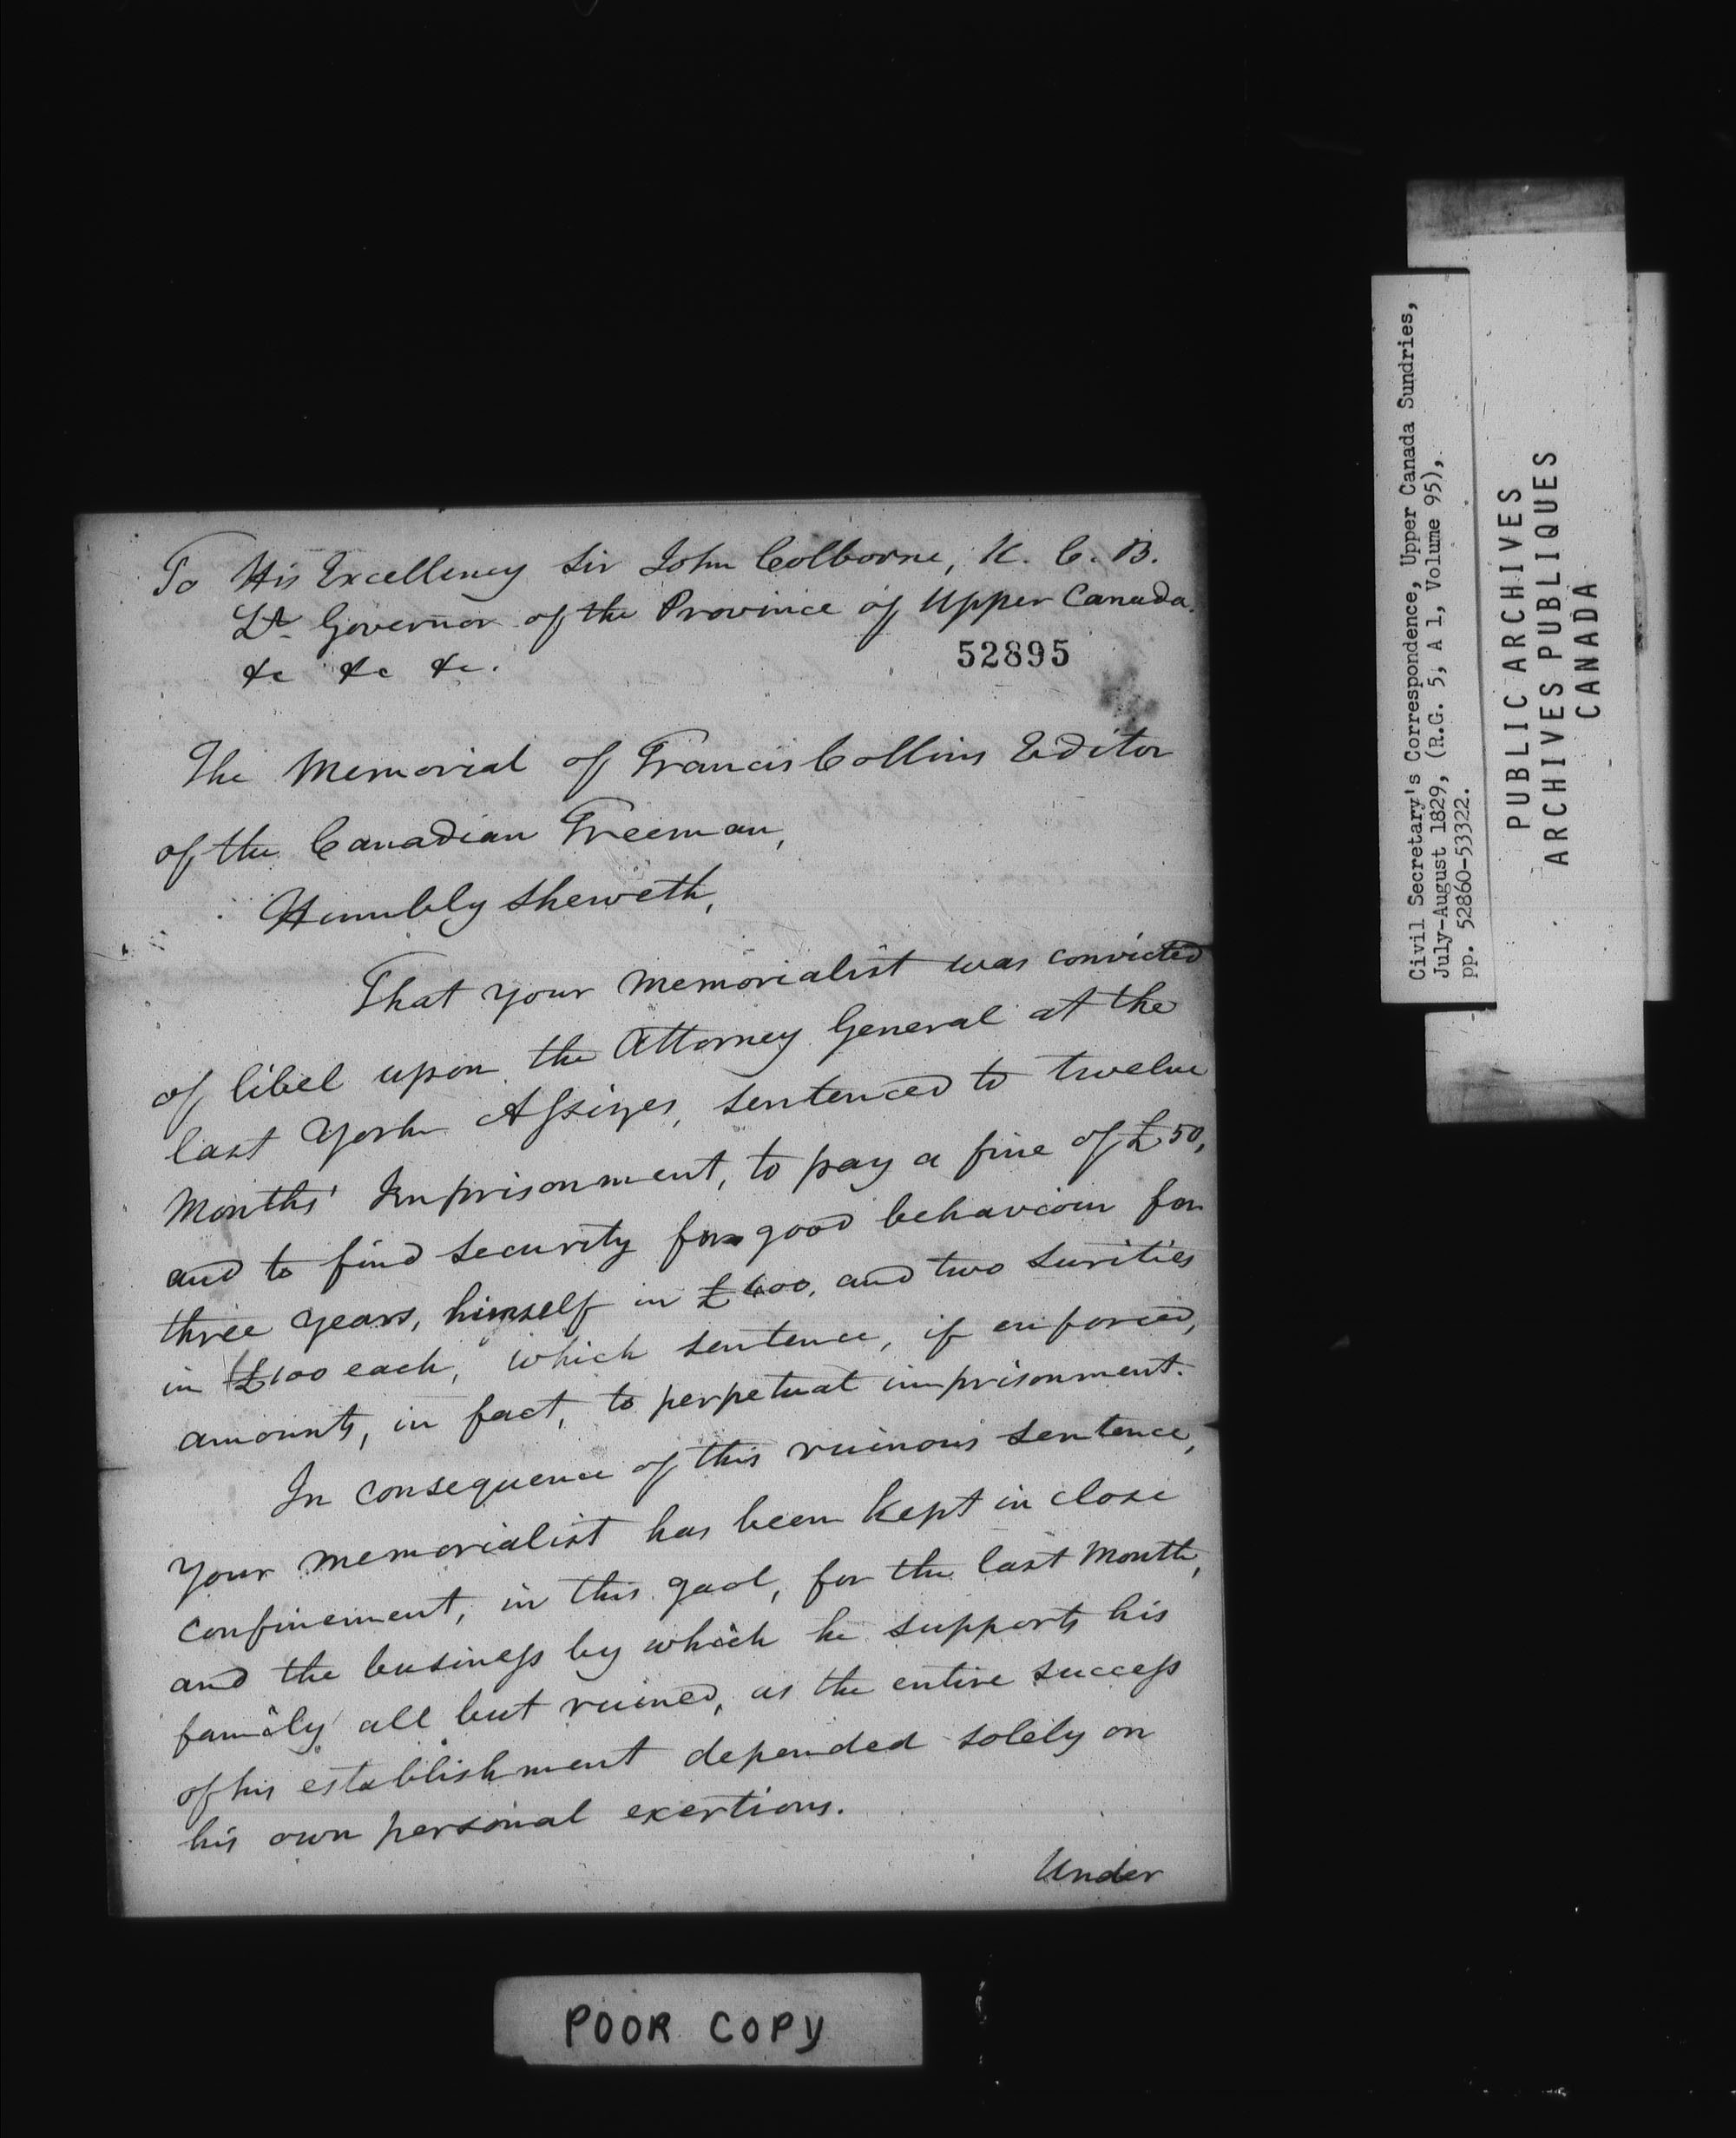 To His Excellency Sir John Colborne, K. C. B.
Lt Governor of the Province of Upper Canada.
&c &c &c.
52895
The Memorial of Francis Collins Editor
of the Canadian Freeman,
Humbly sheweth,
That your memorialist was convicted
of libel upon the Attorney General at the
last York Assizes, sentenced to twelve
Months' Imprisonment, to pay a fine of £50,
and to find security for good behaviour for
three years, himself in £400, and two surities
in £100 each, which sentence, if enforced,
amounts, in fact, to perpetual imprisonment.
In consequence of this ruinous sentence,
your memorialist has been kept in close
confinement, in this gaol, for the last month,
and the business by which he supports his
family all but ruined, as the entire success
of his establishment depended solely on
his own personal exertions.
Under
POOR COPY
Civil Secretary's Correspondence, Upper Canada Sundries,
July-August 1829, (R.G. 5, A 1, Volume 95),
pp. 52860-53322.
PUBLIC ARCHIVES
ARCHIVES PUBLIQUES
CANADA